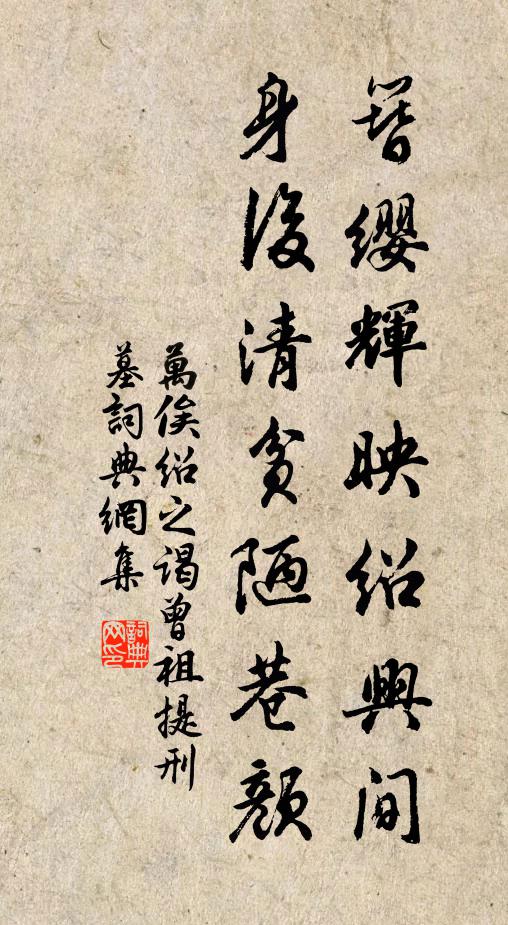 簪纓輝映紹興間
身後清貧陋巷顏
萬俟紹之謁曾祖提刑
墓詞典網集
詞典
网印